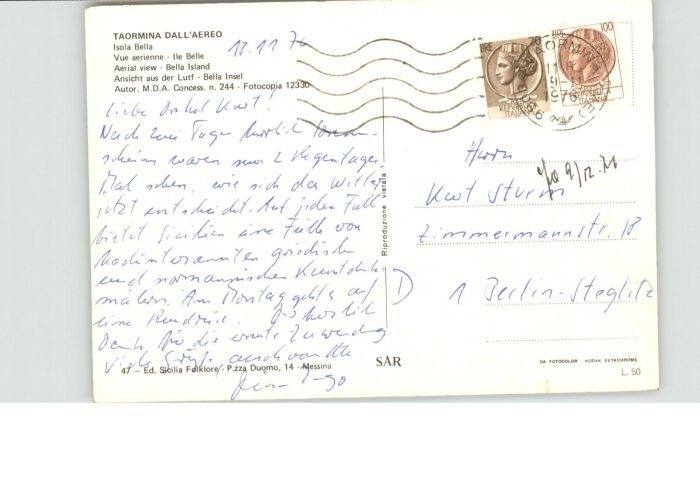 TAORMINA DALL'AEREO
Isola Bella
Vue aerienne - Ile Belle
Aerial view - Bella Island
Ansicht aus der Lutf - Bella Insel
Autor. M.D.A. Concess. n. 244 - Fotocopia 12330
13.11.76
Liebe Onkel Kurt!
Nach zwei Tagen herrlich Sonnen-
schein waren nur 2 Regentage.
Mal sehen, wie sich das Wetter
jetzt entscheidet. Auf jeden Fall
bietet Sizilien eine Fülle von
hochinteressanten griechisch
und normannischen Kunstdenk-
mälern. Am Montag geht's auf
eine Rundreise. Dir herzlich
Dank für die Zuwendung
Viele Grüße auch von Ute
Dein Ingo
47 - Ed. Sicilia Folklore - P.zza Duomo, 14 - Messina
Riproduzione vietata
SAR
LIRE 70
LIRE 100
TAORMINA
1976
Herrn
Kurt Sturm
Zimmermannstr. 18
D 1 Berlin-Steglitz
DA FOTOCOLOR KODAK EKTACHROME
L. 50